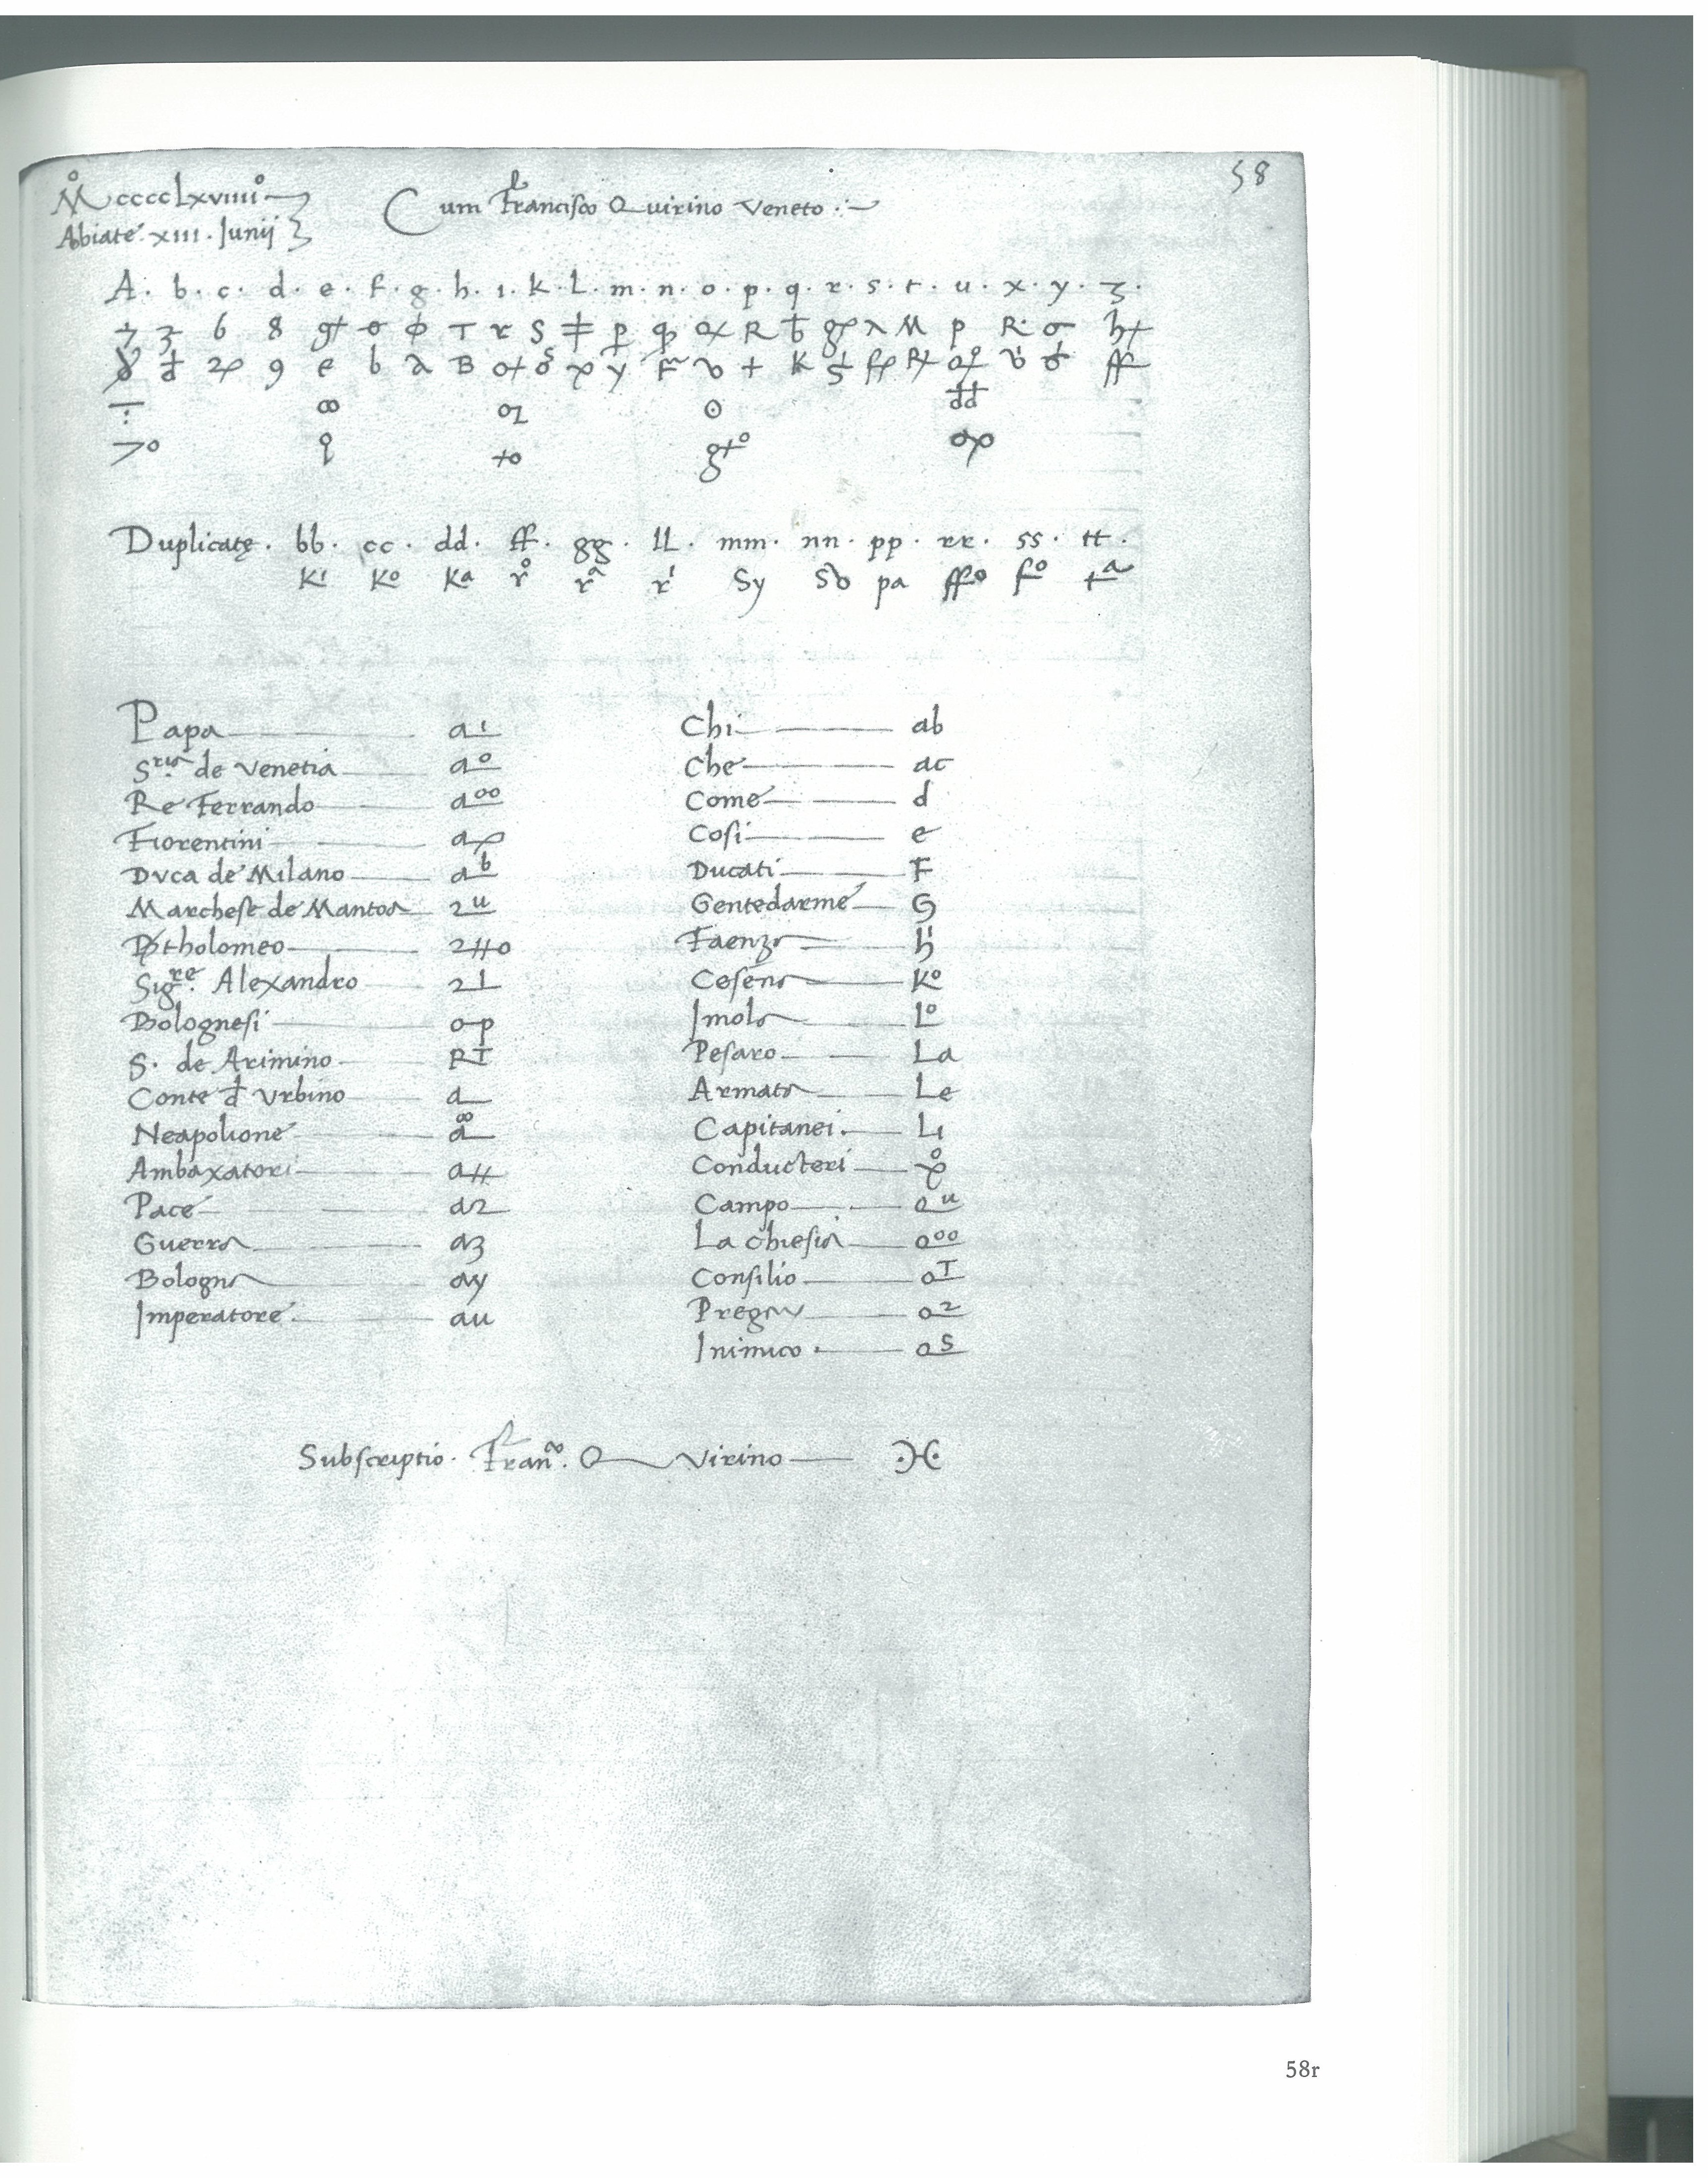 58
Mccccclxviiii
Abiate. xiii. Junij
Cum Francisco Quirino Veneto
A. b. c. d. e. f. g. h. i. k. L. m. n. o. p. q. r. s. t. u. x. y. z.
6 8 ϕ T r S p R λ M p R σ
9 e b λ B y v + K ff
∞ ʘ
Duplicatę. bb. cc. dd. ff. gg. ll. mm. nn. pp. rr. ss. tt.
Kⁱ K° Kª r° rª rⁱ Sy pa ff° f° tª
Papa aⁱ
Sria de Venetia a°
Re Ferrando a°°
Fiorentini
Duca de Milano aᵇ
Marchese de Mantoa 2ᵘ
2#o
Sigre. Alexandro 2L
Bolognesi op
S. de Arimino RT
Conte đ Urbino a
Neapolione
Ambaxatori a#
Pace a2
Guerra a3
Bologna ay
Imperatore. au
Chi ab
Che ac
Come d
Cosi e
Ducati F
Gentedarme G
Faenza hⁱ
Cesena K°
Imola L°
Pesaro La
Armata Le
Capitanei. Li
Conducteri
Campo oᵘ
La chiesia o°°
Consilio oᵀ
Pregai o²
Inimico. oˢ
Subscriptio. Fran. Q Virino
58r